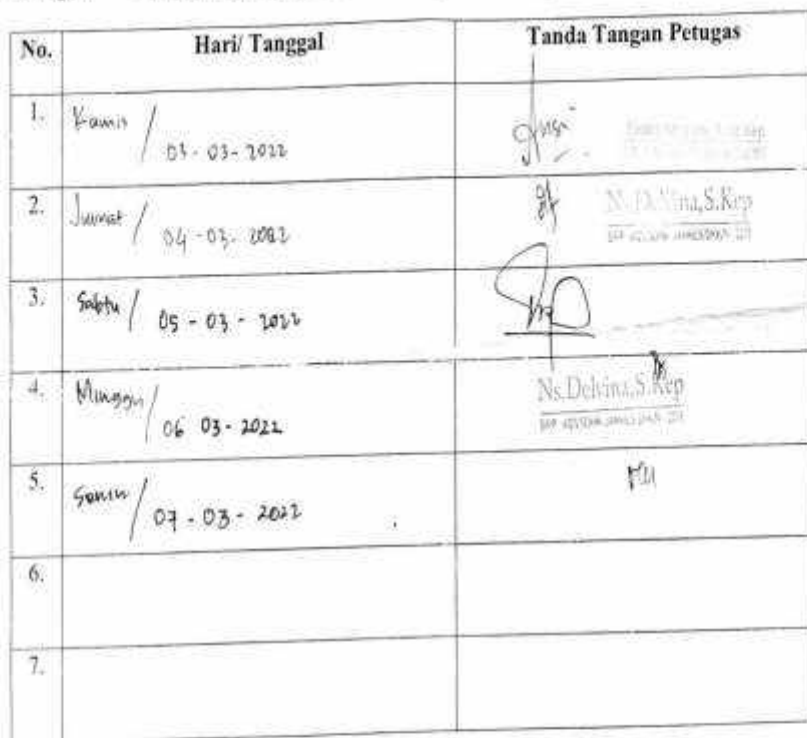 No. Hari/ Tanggal Tanda Tangan Petugas
1. Kamis / 03-03-2022
2. Jumat / 04-03-2022 Ns.Delvina,S.Kep
3. Sabtu / 05-03-2022
4. Minggu / 06 03-2022 Ns.Delvina,S.Kep
5. Senin / 07-03-2022
6.
7.